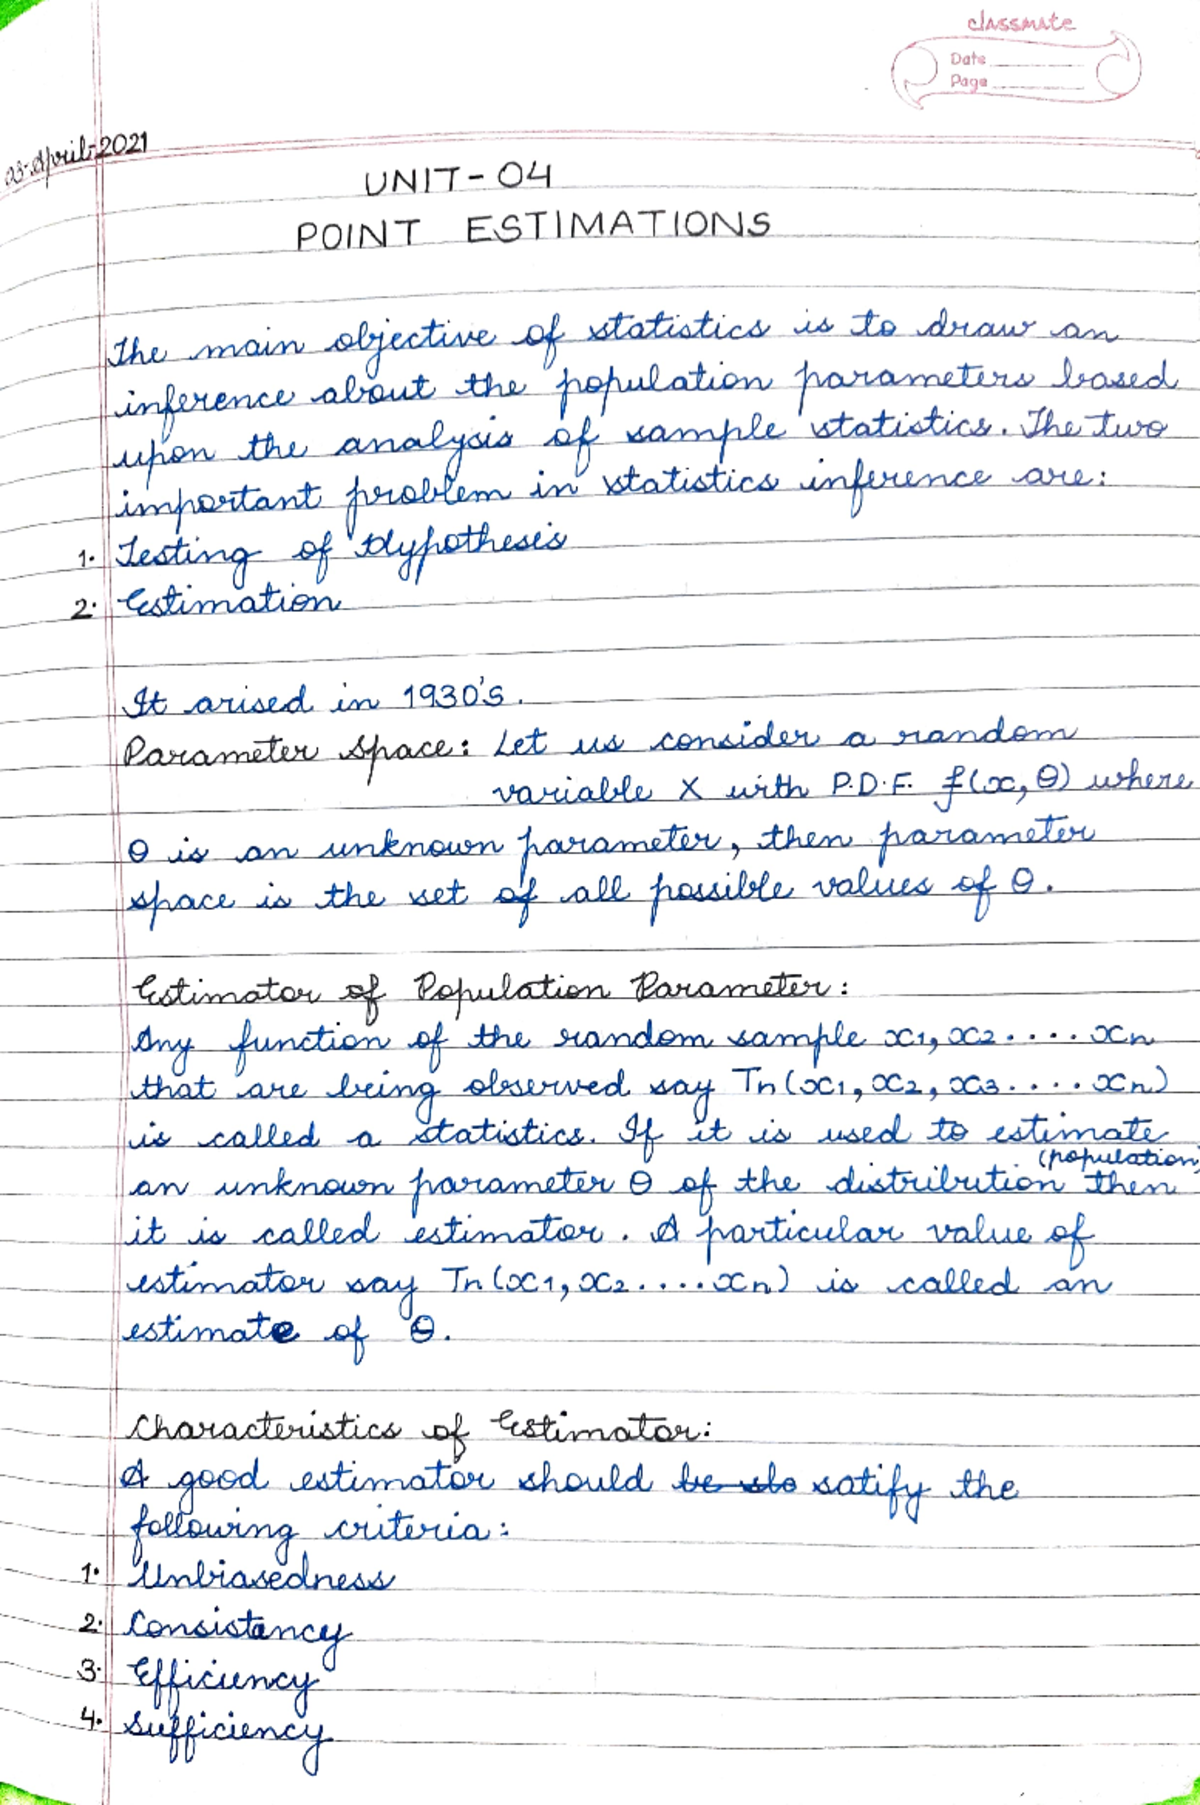 classmate
Date
Page
03-April-2021
UNIT-04
POINT ESTIMATIONS
The main objective of statistics is to draw an
inference about the population parameters based
upon the analysis of sample statistics. The two
important problem in statistics inference are:
1. Testing of Hypothesis
2. Estimation
It arised in 1930's.
Parameter Space: Let us consider a random
variable X with P.D.F. f(x, θ) where
θ is an unknown parameter, then parameter
space is the set of all possible values of θ.
Estimator of Population Parameter:
Any function of the random sample x1, x2.....xn
that are being observed say Tn(x1, x2, x3.....xn)
is called a statistics. If it is used to estimate
(population)
an unknown parameter θ of the distribution then
it is called estimator. A particular value of
estimator say Tn(x1, x2.....xn) is called an
estimate of θ.
Characteristics of Estimator:
A good estimator should be satify the
following criteria:
1. Unbiasedness
2. Consistency
3. Efficiency
4. Sufficiency